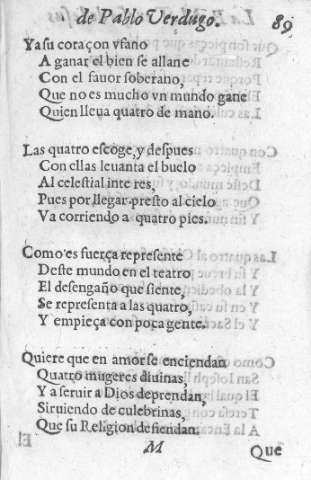 de Pablo Verdugo. 89
Ya su coraçon vfano
A ganar el bien se allane
Con el fauor soberano,
Que no es mucho vn mundo gane
Quien lleua quatro de mano.
Las quatro escoge, y despues
Con ellas leuanta el buelo
Al celestial inte res,
Pues por llegar presto al cielo
Va corriendo a quatro pies.
Como es fuerça represente
Deste mundo en el teatro
El desengaño que siente,
Se representa a las quatro,
Y empieça con poca gente.
Quiere que en amor se enciendan
Quatro mugeres diuinas,
Y a seruir a Dios deprendan,
Siruiendo de culebrinas,
Que su Religion defiendan.
M Que